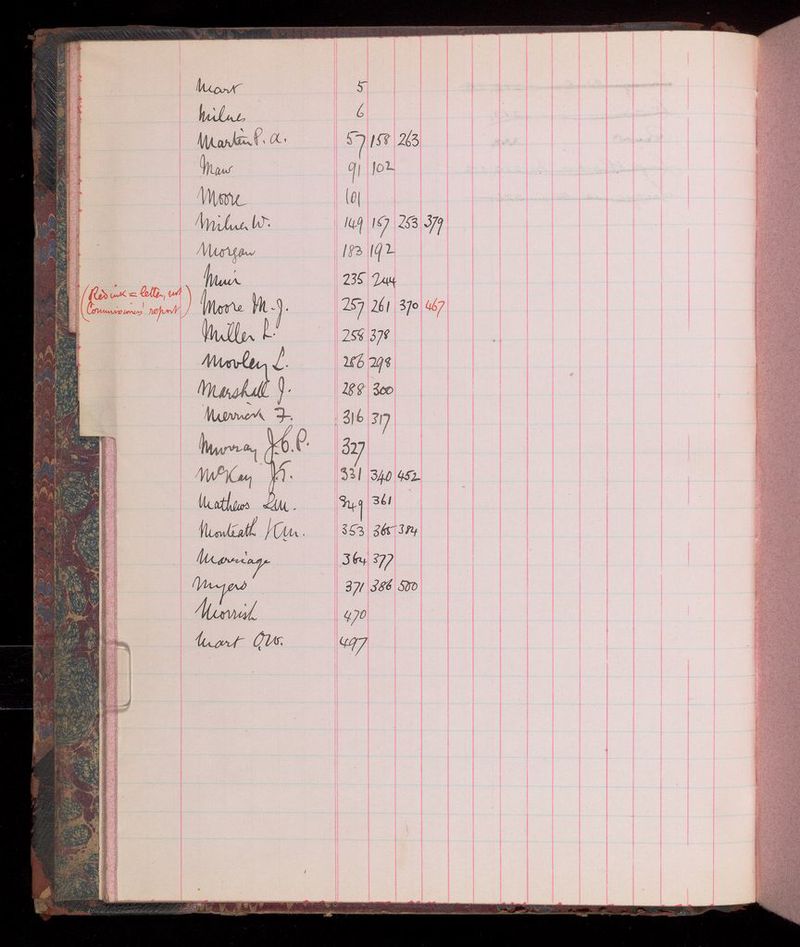 Mart 5
Milnes 6
Martin P. A. 57 158 263
Maw 91 102
Moore 101
Milnes W. 149 157 253 379
Morgan 183 192
Muir 235 244
(Red ink = letter, not
Commissioners' report)
Moore M. J. 257 261 370 467
Miller L. 258 378
Movley L. 286 298
Marshall J. 288 300
Merrick F. 316 317
Murray J. C. P. 327
McKay 331 340 452
Mathews 349 361
Monteath 353 365 384
Marriage 364 377
Myers 371 386 500
Morrish 470
Mart O.W. 497